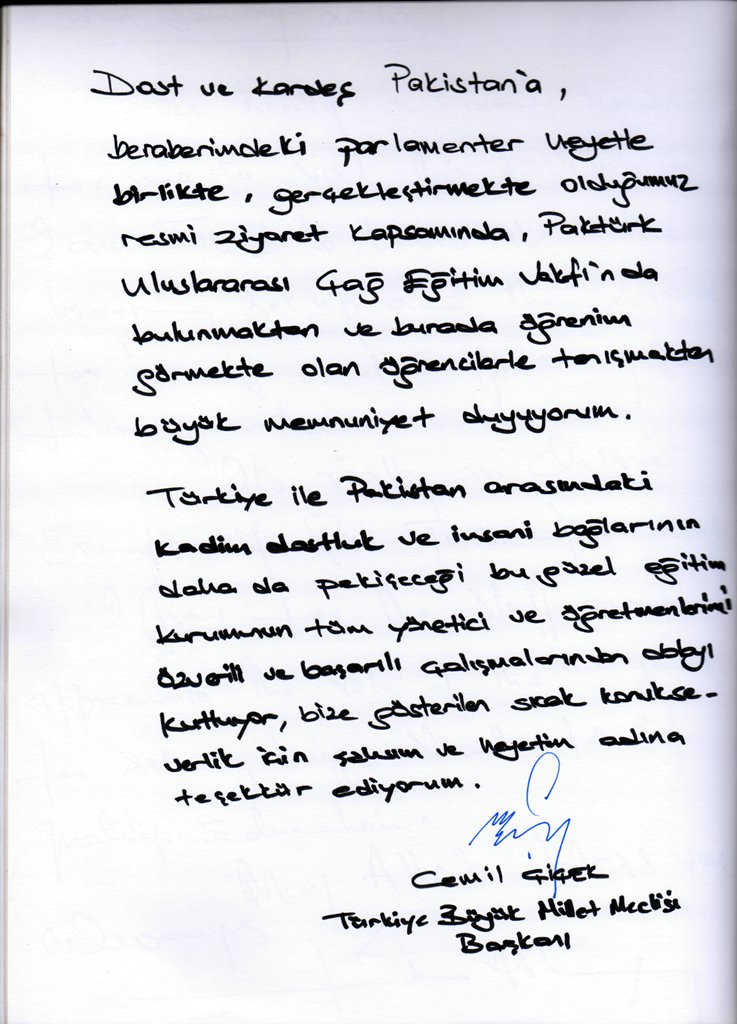 Dost ve Kardeş Pakistan'a,
beraberimdeki parlamenter heyetle
birlikte, gerçekleştirmekte olduğumuz
resmi ziyaret kapsamında, Paktürk
Uluslararası Çağ Eğitim Vakfı'nda
bulunmaktan ve burada öğrenim
görmekte olan öğrencilerle tanışmaktan
büyük memnuniyet duyuyorum.
Türkiye ile Pakistan arasındaki
kadim dostluk ve insani bağlarının
daha da pekişeceği bu güzel eğitim
kurumunun tüm yönetici ve öğretmenlerini
özverili ve başarılı çalışmalarından dolayı
kutluyor, bize gösterilen sıcak konukse-
verlik için şahsım ve heyetim adına
teşekkür ediyorum.
Cemil Çiçek
Türkiye Büyük Millet Meclisi
Başkanı